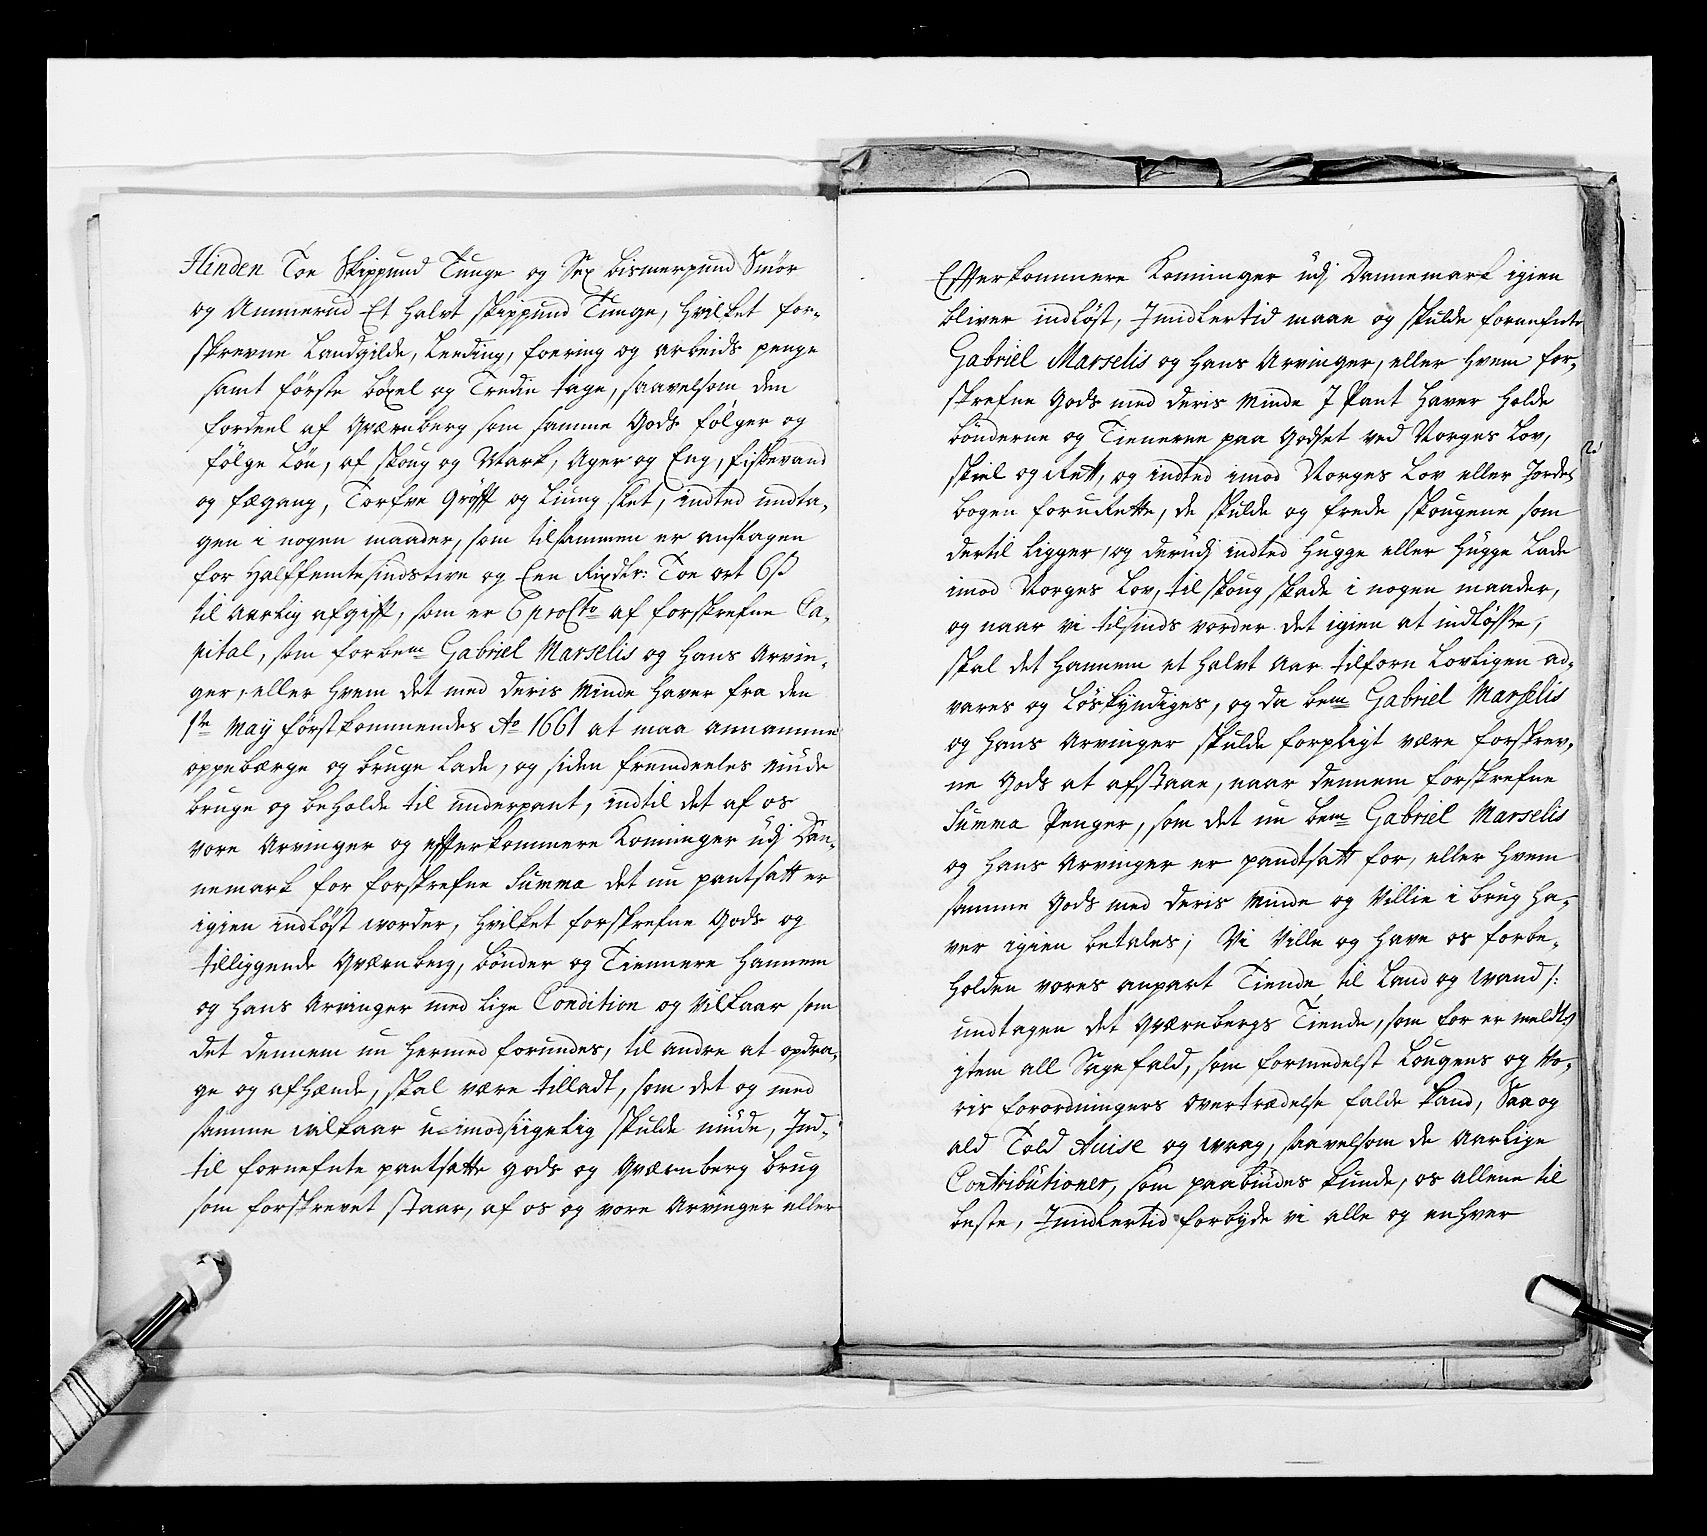 Hinden Toe Skippund Tunge og Sex bismerpund Smör
og Ammerud Et halvt skippund Tunge, hvilket for-
skrevne Landgilde, Leeding, foering og arbeids penge
samt förste böxel og Tredie tage, saavelsom den
fordeel af Qværnberg som samme Gods fölger og
fölge bör, af skoug og Mark, Ager og Eng, fiskevand
og fægang, Torfve gröfft og Liung slet, indted undta-
gen i nogen maader, som tilsammen er anslagen
for Halffemtesindstive og Een Rixdlr: Toe ort 6 ß
til aarlig afgifft, som er 6 proCto af forskrefne Ca-
pital, som forbem.te Gabriel Marselis og hans Arvin-
ger, eller hvem det med deris minde haver fra den
1te Maÿ förstkommendes Ao 1661 at maa annamme
oppebærge og bruge lade, og siden fremdeeles niude
bruge og beholde til underpant, indtil det af os
vore Arvinger og effterkommere Konninger udj Dan-
nemark for forskrefne Summa det nu pantsatt er
igien indlöst worder, hvilket forskrefne Gods og
tilliggende Qværnberg, bönder og Tiennere hannem
og hans Arvinger med lige Condition og vilkaar som
det dennem nu hermed forundes, til andre at opdra-
ge og afhænde, skal være tilladt, som det og med
samme vilkaar u-imodsiigelig skulde niude, Ind-
til fornefnte pantsatte gods og Qværnberg brug
som forskrevet staar, af os og vore Arvinger eller
Effterkommere Konninger udj Dannemark igien
bliver indlöst, Imidlertid maae og skulde fornefnte
Gabriel Marselis og hans Arvinger, eller hvem for-
skrefne Gods med deris minde I Pant haver holde
bönderne og Tienerne paa Godset ved Norges Lov,
skiel og Rett, og indted imod Norges Lov eller Jorde-
bogen foruRette, de skulde og frede skougene som
dertil ligger, og derudj indted hugge eller hugge lade
imod Norges Lov, til skoug skade i nogen maader,
og naar vi tilsinds vorder det igien at indlösse,
skal det hannem et halvt Aar tilforn Lovligen ad-
vares og löskyndiges, og da bem.te Gabriel Marselis
og hans Arvinger skulde forpligt være forskrev-
ne Gods at afstaae, naar dennem forskrefne
Summa Penger, som det nu bem.te Gabriel Marselis
og hans Arvinger er pandtsatt for, eller hvem
samme Gods med deris minde og Villie i brug ha-
ver igien betales; Vi Ville og have os forbe-
holden vores anpart Tiende til Land og Wand /:
undtagen det Qværnbergs Tiende, som for er meldt:/
jtem all Sagefald, som formedelst Lougens og Vo-
ris forordningers overtrædelse falde kand, Saa og
ald Told Axise og wrag, saavelsom de Aarlige
Contributioner, som paabindes kunde, os allene til
beste, Imidlertid forbyde vi alle og enhver